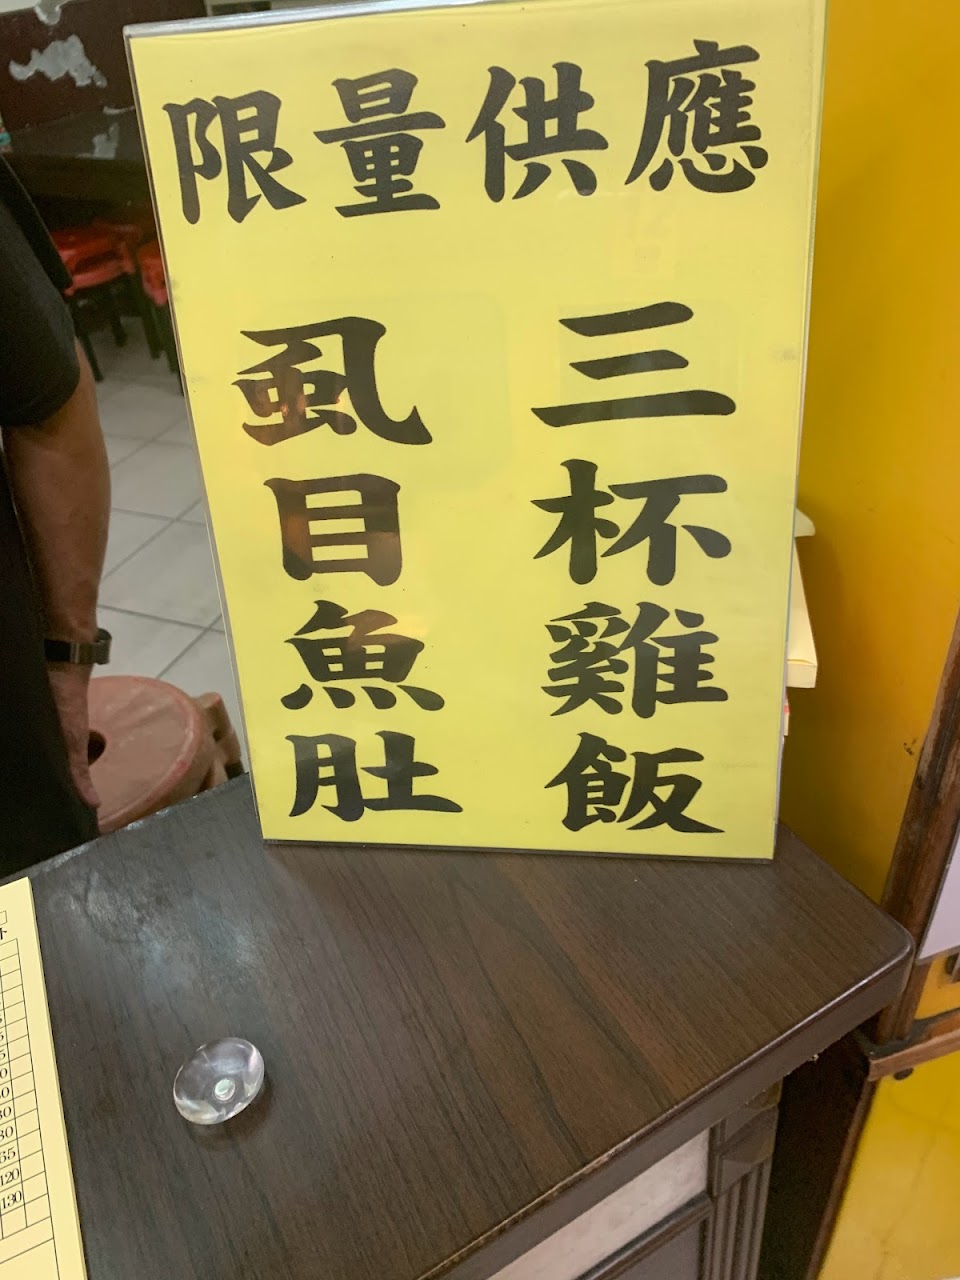 限量供應
三杯雞飯
虱目魚肚
65
120
130